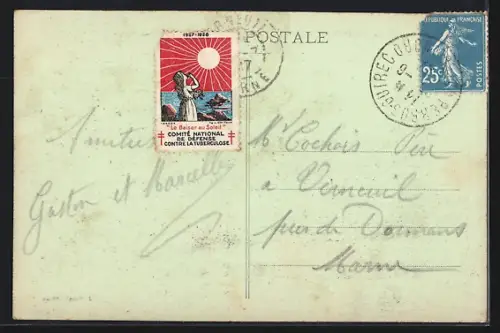 POSTALE
1927-1928
"Le Baiser au Soleil"
COMITÉ NATIONAL
DE DÉFENSE
CONTRE LA TUBERCULOSE
MARNE
REPUBLIQUE FRANÇAISE
25c
POSTES
Amitiés
Gaston et Marcelle
Mr Cochois Père
à Verneuil
près de Dormans
Marne